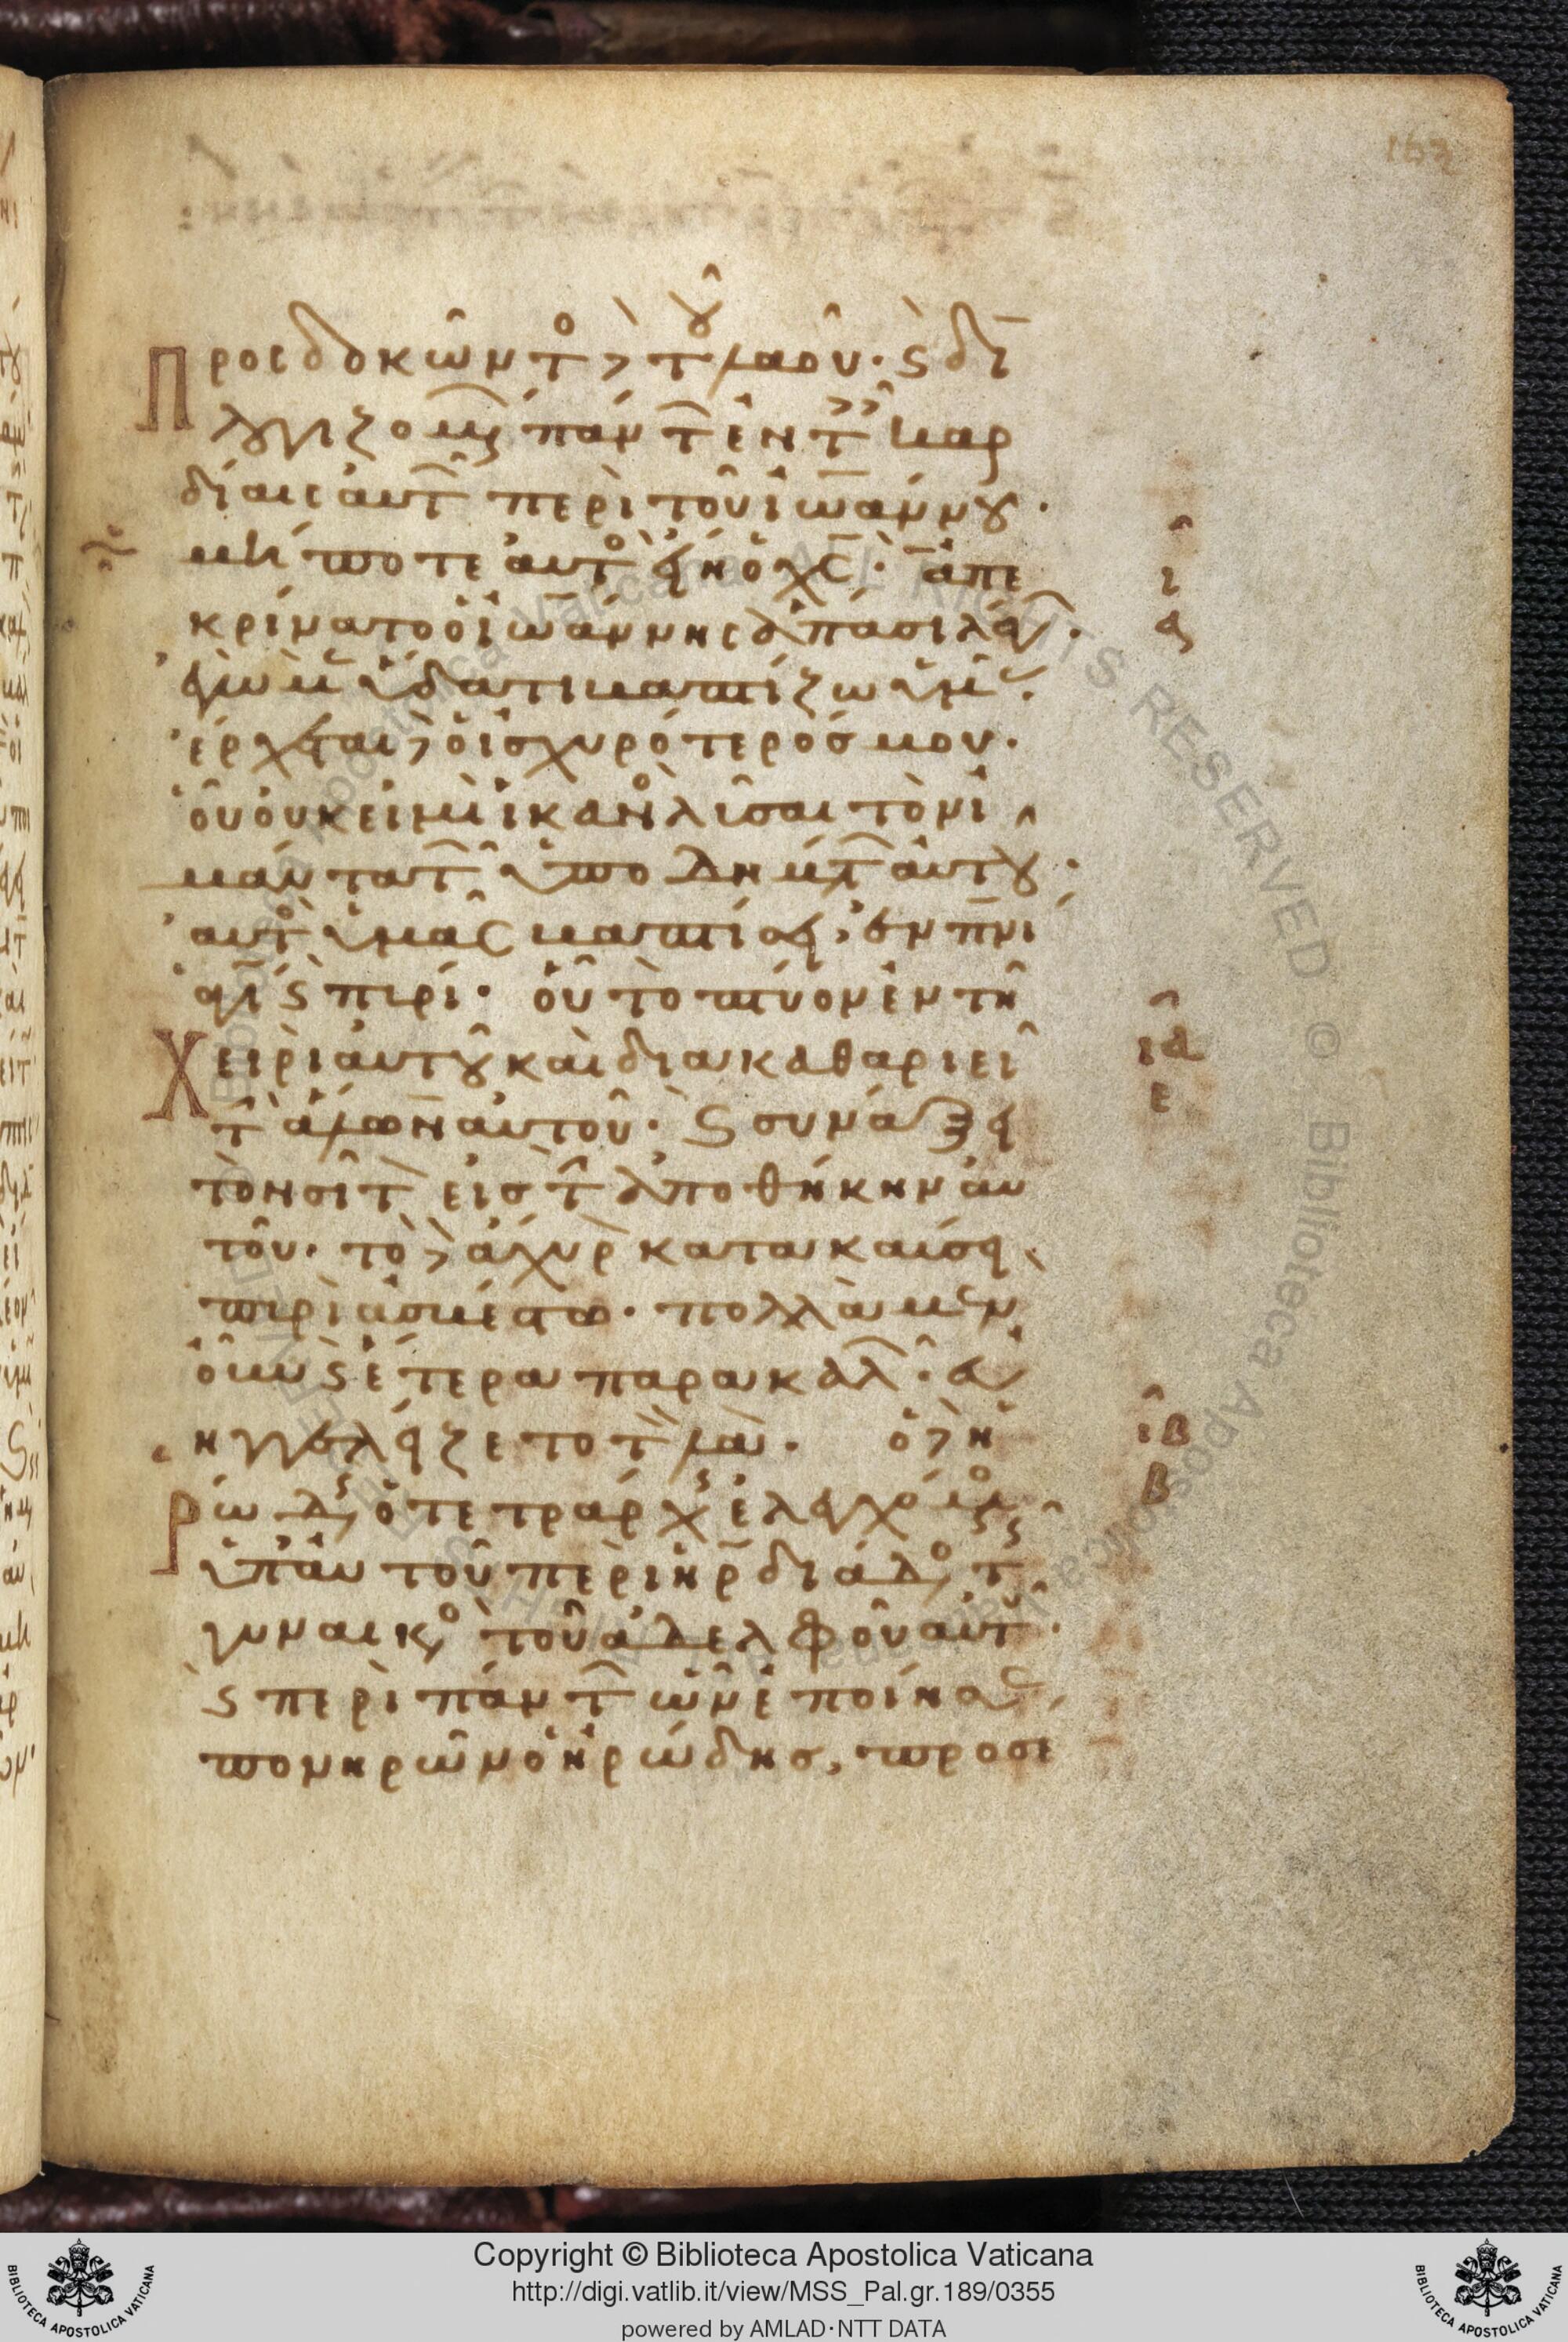 163
Προσδοκῶντο(ς) δὲ τοῦ λαοῦ· καὶ δι
λογιζομ(ένων) πάντ(ων) ἐν τ(αῖς) καρ
δίαις αὐτ(ῶν) περὶ τοῦ ἰωάννου·
μήποτε αὐτὸ(ς) εἴη ὁ χ(ριστό)ς· ἀπε
κρίνατο ὁ ἰωάννης ἅπασι λέγων·
ἐγὼ μ(ὲν) ὕδατι βαπτίζω ὑμᾶς·
ἔρχεται δὲ ὁ ἰσχυρότερός μου·
οὗ οὐκ εἰμὶ ἱκανὸ(ς) λῦσαι τὸν ἱ
μάντα τῶν ὑποδημάτ(ων) αὐτοῦ·
αὐτὸ(ς) ὑμᾶς βαπτίσει, ἐν πν(εύματ)ι
ἁγί(ω) καὶ πυρί· οὗ τὸ πτύον ἐν τῆ
χειρὶ αὐτοῦ καὶ διακαθαριεῖ
τ(ὴν) ἅλωνα αὐτοῦ· καὶ συνάξει
τὸν σῖτ(ον) εἰς τ(ὴν) ἀποθήκην αὐ
τοῦ· τὸ δὲ ἄχυρ(ον) κατακαύσει
πυρὶ ἀσβέστω· πολλὰ μὲν
οὖν καὶ ἕτερα παρακαλ(ῶν)· εὐ
ηγγελίζετο τ(ὸν) λα(όν)· ὁ δὲ ἡ
ρώδης ὁ τετράρχης ἐλεγχόμενος
ὑπ' αὐτοῦ περὶ ἡρωδιάδο(ς) τῆς
γυναικὸ(ς) τοῦ ἀδελφοῦ αὐτοῦ·
καὶ περὶ πάντ(ων) ὧν ἐποίησε
πονηρῶν ὁ ἡρώδης, προσέ
ι
ς
ια
ε
ιβ
β
Copyright © Biblioteca Apostolica Vaticana
http://digi.vatlib.it/view/MSS_Pal.gr.189/0355
powered by AMLAD·NTT DATA